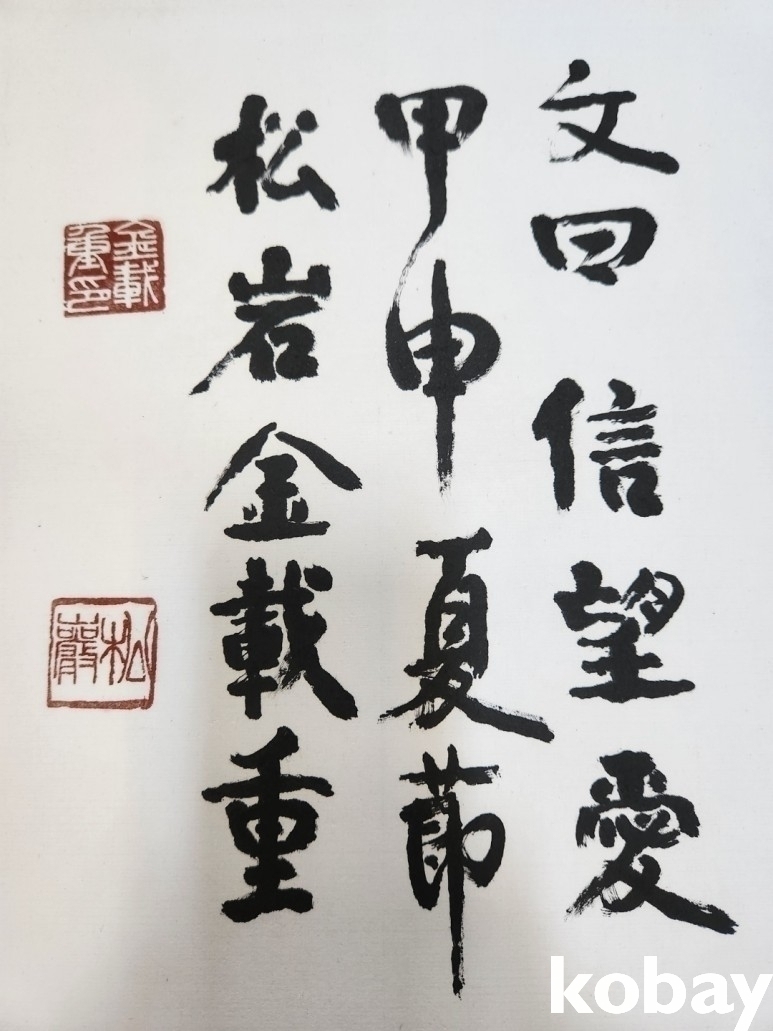 文曰 信望愛
甲申夏節
松岩金載重
金載
重印
松巖
kobay